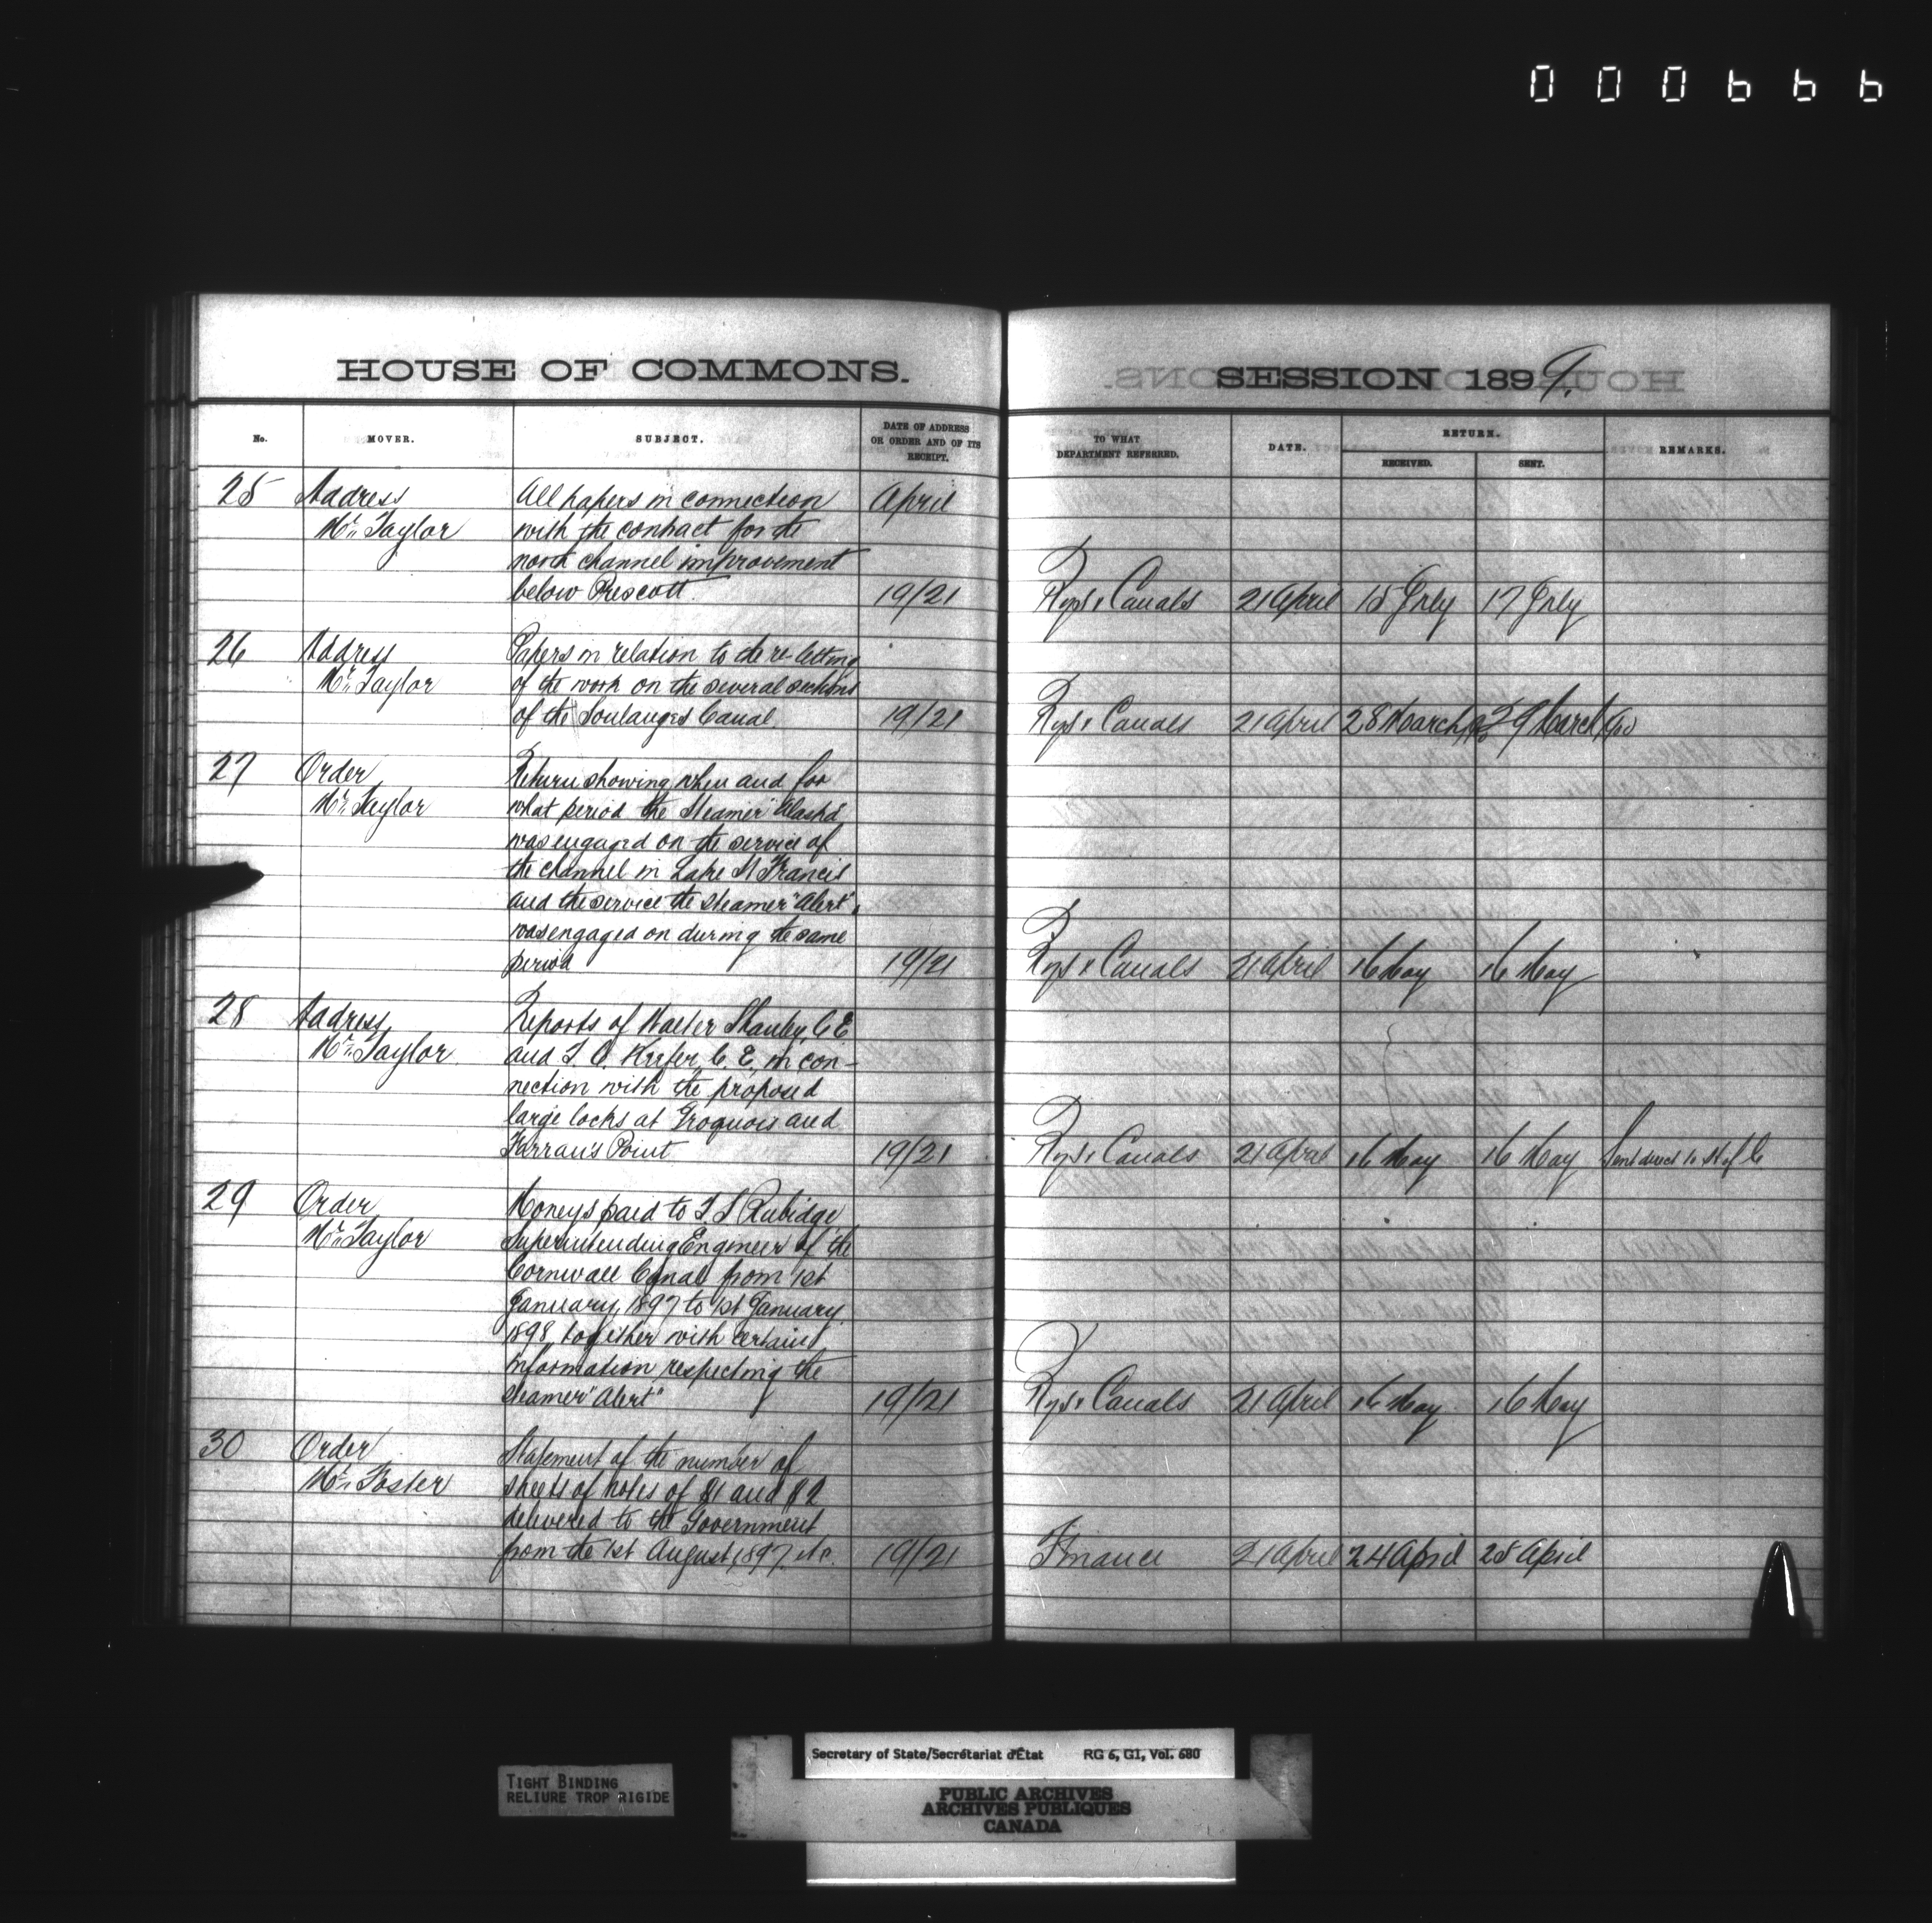 000666
HOUSE OF COMMONS.
No. MOVER. SUBJECT. DATE OF ADDRESS OR ORDER AND OF ITS RECEIPT.
25 Address All papers in connection April
Mr. Taylor with the contract for the
north channel improvement
below Prescott. 19/21
26 Address Papers in relation to the re-letting
Mr. Taylor of the work on the several sections
of the Soulanges Canal 19/21
27 Order Return showing when and for
Mr. Taylor what period the Steamer "Alaska"
was engaged on the service of
the channel in Lake St Francis
and the service the steamer "Alert"
was engaged on during the same
period 19/21
28 Address Reports of Walter Shanly, C.E.
Mr. Taylor and T. C. Keefer, C. E. in con-
nection with the proposed
large locks at Iroquois and
Farran's Point 19/21
29 Order Moneys paid to T. S Rubidge
Mr. Taylor Superintending Engineer of the
Cornwall Canal from 1st
January, 1897 to 1st January
1898, together with certain
information respecting the
steamer "Alert" 19/21
30 Order Statement of the number of
Mr. Foster sheets of notes of $1 and $2
delivered to the Government
from the 1st August, 1897. etc. 19/21
SESSION 1899.
TO WHAT DEPARTMENT REFERRED. DATE. RETURN. RECEIVED. SENT. REMARKS.
Rys & Canals 21 April 15 July 17 July
Rys & Canals 21 April 28 March/00 29 March/00
Rys & Canals 21 April 16 May 16 May
Rys & Canals 21 April 16 May 16 May Sent direct to H of C
Rys & Canals 21 April 16 May 16 May
Finance 21 April 24 April 25 April
TIGHT BINDING
RELIURE TROP RIGIDE
Secretary of State/Secrétariat d'État RG 6, G1, Vol. 680
PUBLIC ARCHIVES
ARCHIVES PUBLIQUES
CANADA